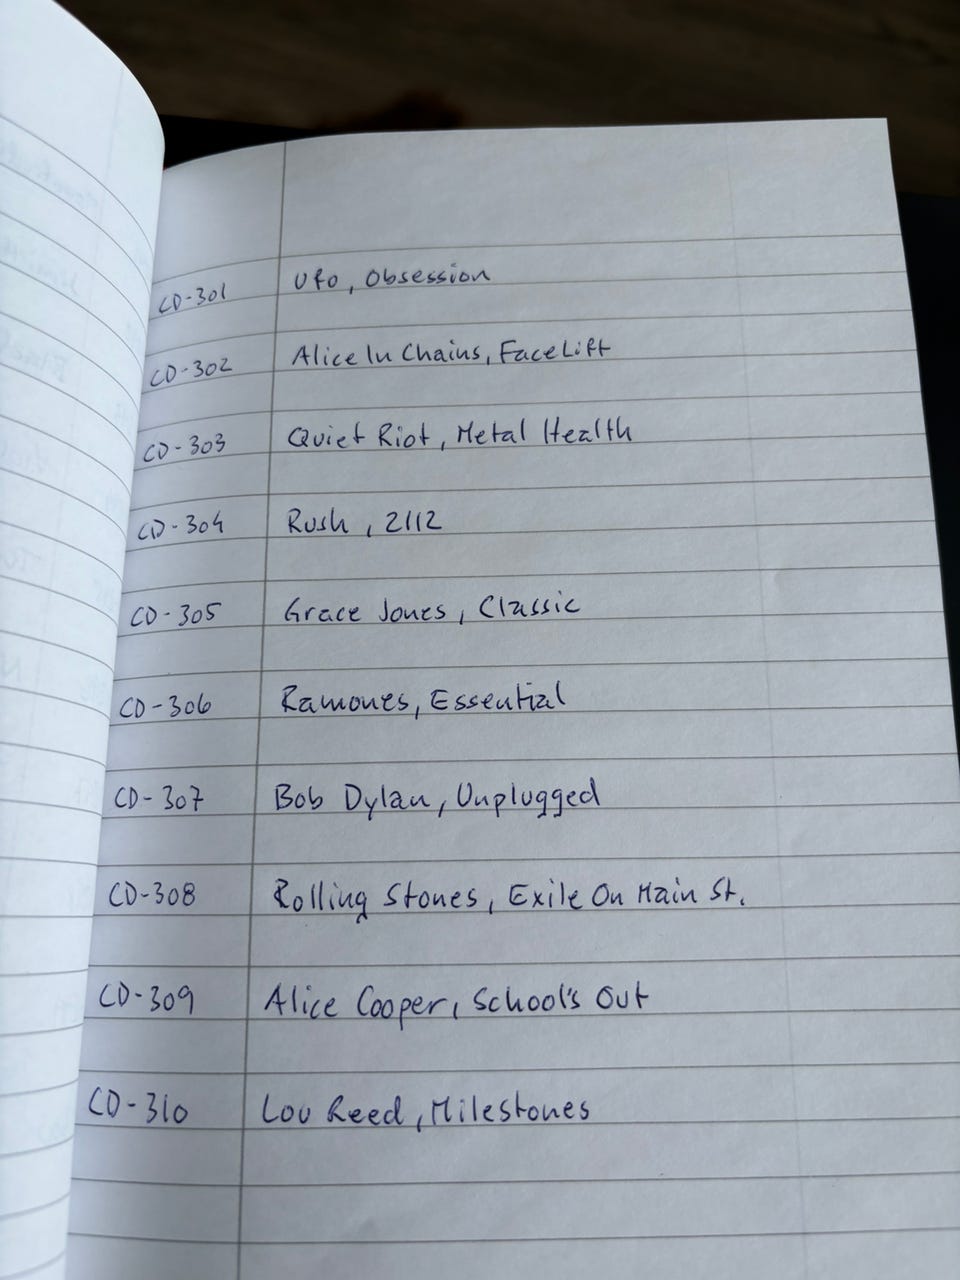 CD-301 Ufo, Obsession
CD-302 Alice In Chains, FaceLift
CD-303 Quiet Riot, Metal Health
CD-304 Rush, 2112
CD-305 Grace Jones, Classic
CD-306 Ramones, Essential
CD-307 Bob Dylan, Unplugged
CD-308 Rolling Stones, Exile On Main St.
CD-309 Alice Cooper, School's Out
CD-310 Lou Reed, Milestones